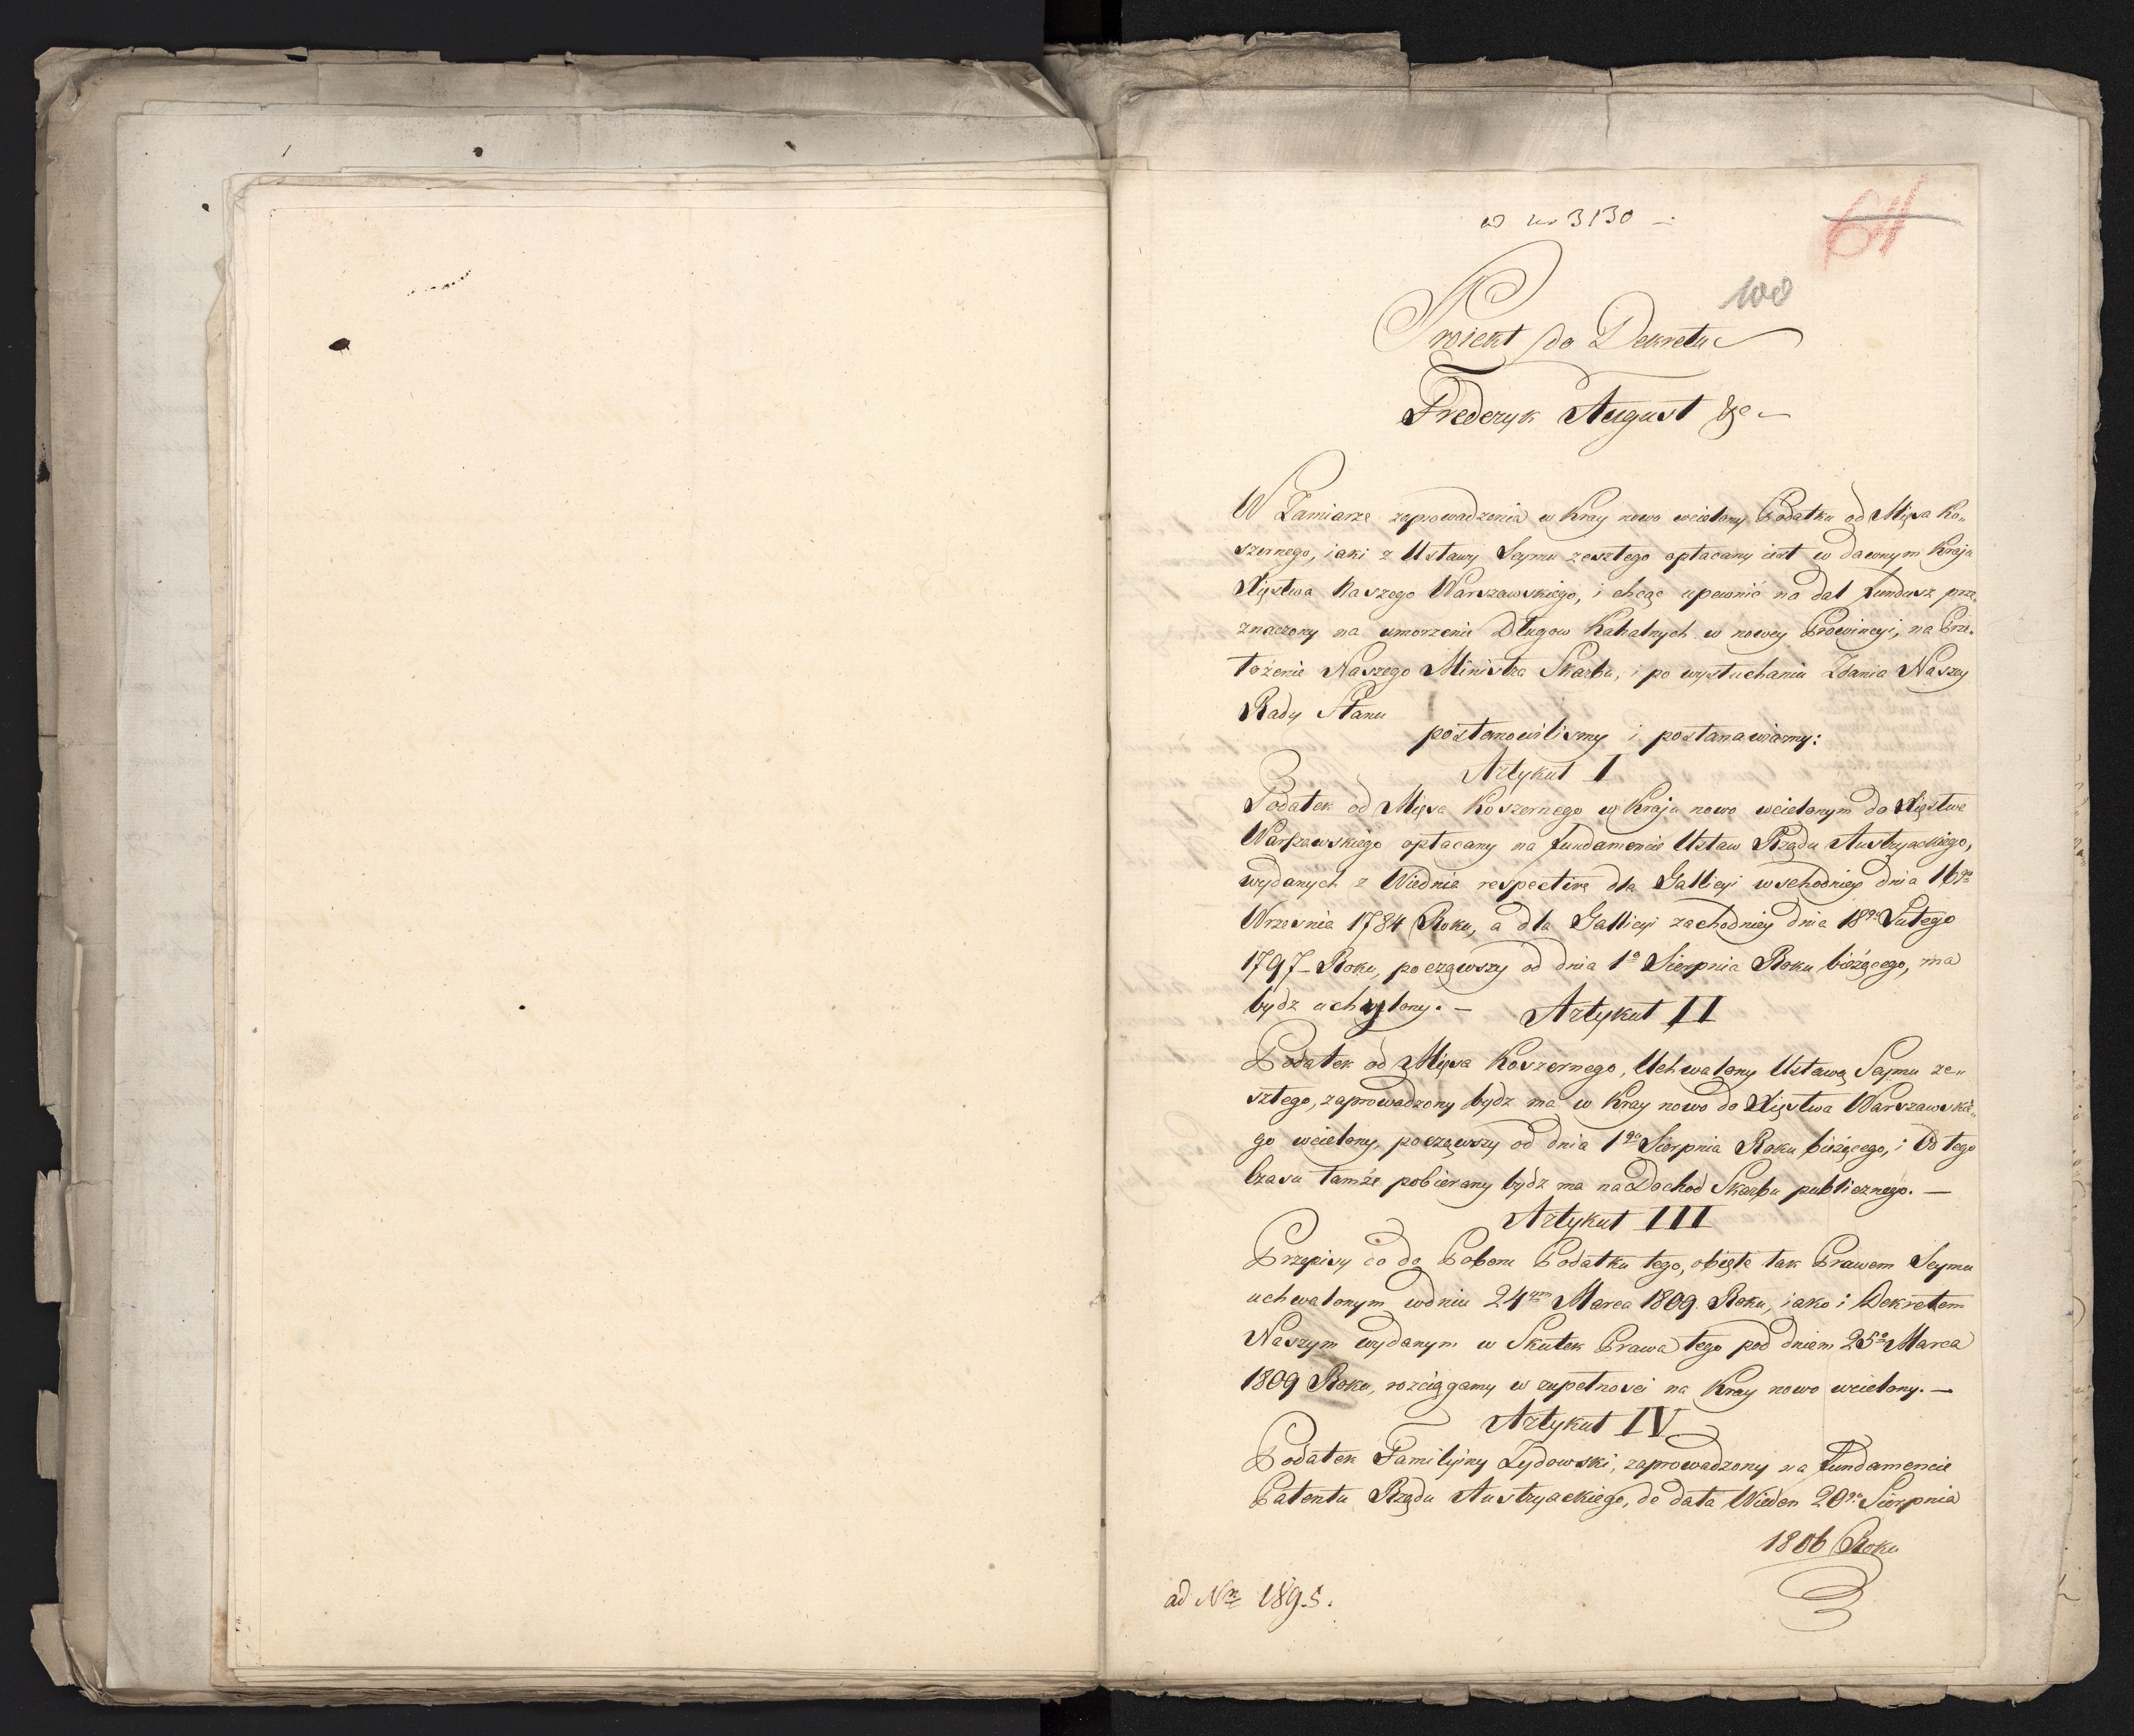 ad nr 3130 –
64
100
Proiekt do Dekretu
Frederyk August &c –
W Zamiarze zaprowadzenia w Kray nowo wcielony Podatku od Mięsa Ko„
szernego, iaki z Ustawy Seymu zeszłego opłacany iest w dawnym Kraju
Xięstwa Naszego Warszawskiego, i chcąc upewnić na dal fundusz prze„
znaczony na umorzenie Długow Kahalnych w nowey Prowincyi, na Prze„
łożenie Naszego Ministra Skarbu, i po wysłuchaniu Zdania Naszey
Rady Stanu
postanowilismy i postanawiamy:
Artykuł I
Podatek od Mięsa Koszernego w Kraju nowo wcielonym do Xięstwa
Warszawskiego opłacany na fundamencie Ustaw Rządu Austryackiego,
wydanych z Wiednia respective dla Gallicyi wschodniey dnia 16go
Wrzesnia 1784 Roku, a dla Gallicyi zachodniey dnia 18go Lutego
1797– Roku, począwszy od dnia 1o Sierpnia Roku bieżącego, ma
bydz uchylony. – Artykuł II
Podatek od Mięsa Koszernego, Uchwalony Ustawą Seymu ze„
szłego, zaprowadzony bydz ma w Kray nowo do Xięstwa Warszawskie„
go wcielony, począwszy od dnia 1go Sierpnia Roku bieżącego, i Od tego
Czasu tamże pobierany bydz ma na Dochod Skarbu publicznego. –
Artykuł III
Przepisy co do Poboru Podatku tego, obięte tak Prawem Seymu
uchwalonym w dniu 24ym Marca 1809. Roku, iako i Dekretem
Naszym wydanym w Skutek Prawa tego pod dniem 25o Marca
1809 Roku, rozciągamy w zupełnosci na Kray nowo wcielony. –
Artykuł IV
Podatek Familijny Zydowski, zaprowadzony na fundamencie
Patentu Rządu Austryackiego, de data Wieden 20go Sierpnia
1806 Roku
ad Nr 189.5.